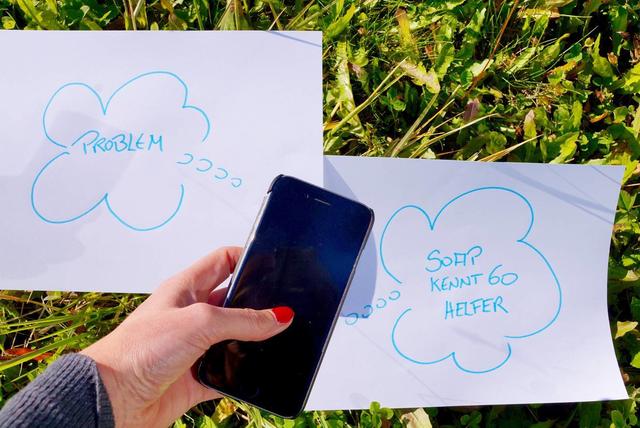 PROBLEM
SOAP
KENNT 60
HELFER